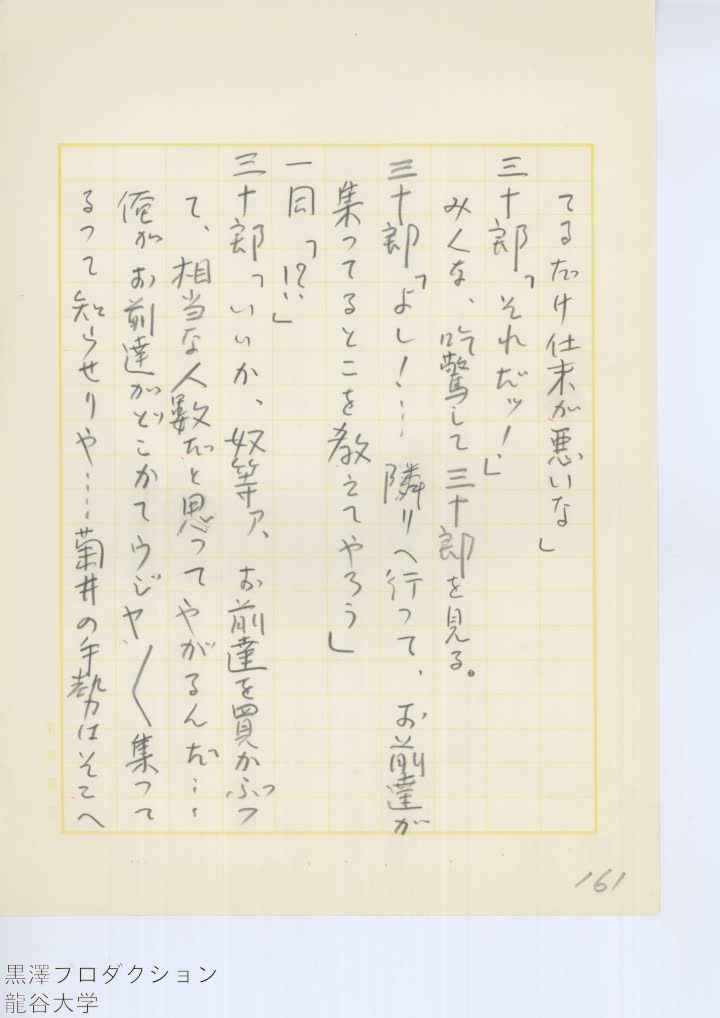 てるだけ仕末が悪いな」
三十郎「それだッ！」
みんな、吃驚して三十郎を見る。
三十郎「よし！… 隣りへ行って、お前達が
集ってるとこを教えてやろう」
一同「！？」
三十郎「いいか、奴等ァ、お前達を買かぶっ
て、相当な人数だと思ってやがるんだ…
俺がお前達がどこかでウジャ〳〵集って
るって知らせりや……菊井の手勢はそこへ
161
黒澤プロダクション
龍谷大学